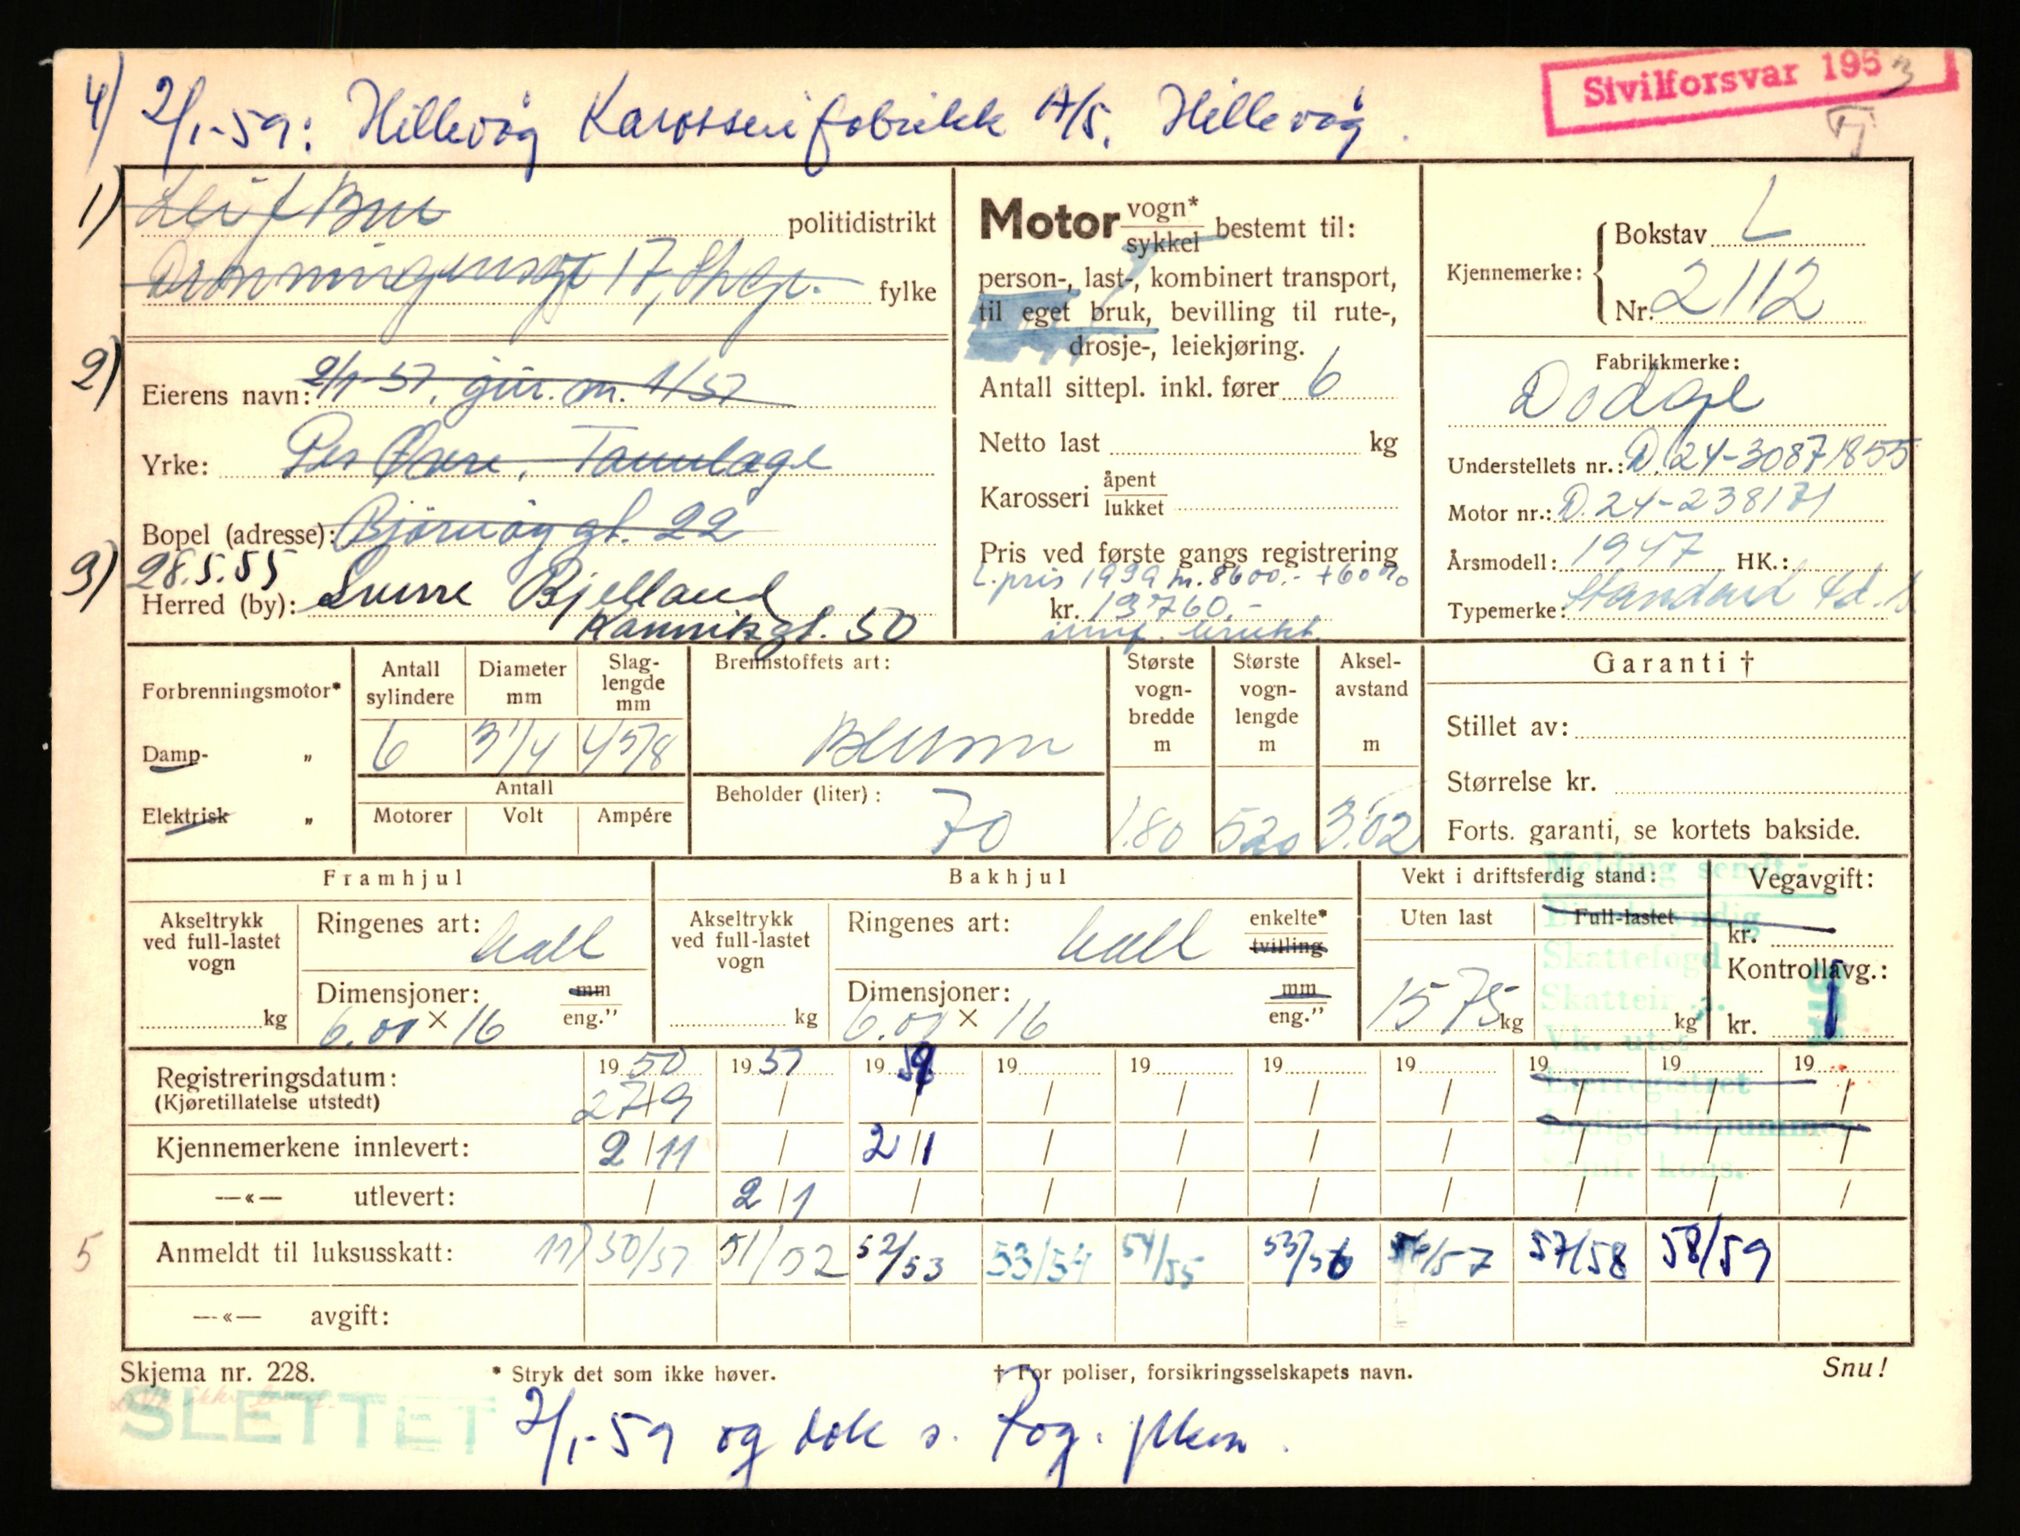 Sivilforsvar 1953
4) 2/1-59: Hillevåg Karosserifabrikk A/S, Hillevåg.
1) Leif Bue
politidistrikt
Dronningensgt 17, Stvgr.
fylke
2) 2/1-51, gür. m. 1/51
Eierens navn:
Yrke: Per Øvre, Tannlæge
Bopel (adresse): Bjørnøy gt. 22
3) 28.5.55
Herred (by): Sverre Bjelland
Kannikgt. 50
Motor vogn* sykkel bestemt til:
person-, last-, kombinert transport,
til eget bruk, bevilling til rute-,
drosje-, leiekjøring.
Antall sittepl. inkl. fører 6
Netto last kg
Karosseri åpent lukket
Pris ved første gangs registrering
L.pris 1939 kr. 8600.- + 60%
kr. 13760.-
imp. brukt
Kjennemerke: Bokstav L
Nr. 2112
Fabrikkmerke:
Dodge
Understellets nr.: D.24-30871855
Motor nr.: D.24-238171
Årsmodell: 1947 HK.:
Typemerke: Standard 4d.
Forbrenningsmotor*
Damp- „
Elektrisk „
Antall sylindere 6
Diameter mm 3 1/4
Slaglengde mm 4 5/8
Antall
Motorer Volt Ampére
Brennstoffets art:
Bensin
Beholder (liter): 70
Største vognbredde m 1.80
Største vognlengde m 520
Akselavstand m 3.02
Garanti †
Stillet av:
Størrelse kr.
Forts. garanti, se kortets bakside.
Framhjul
Akseltrykk ved full-lastet vogn
kg
Ringenes art: hall
Dimensjoner: mm eng."
6.00 × 16
Bakhjul
Akseltrykk ved full-lastet vogn
kg
Ringenes art: hall enkelte* tvilling
Dimensjoner: mm eng."
6.00 × 16
Vekt i driftsferdig stand:
Uten last Full-lastet
1575 kg kg
Vegavgift:
kr.
Kontrollavg.:
kr.
Melding sendt:
Skattefogd
Registreringsdatum: 1950 1951 1959 19 19 19 19 19 19 19
(Kjøretillatelse utstedt) 27/9
Kjennemerkene innlevert: 2/11 / 2/1
—«— utlevert: / 2/1
5 Anmeldt til luksusskatt: 50/51 51/52 52/53 53/54 54/55 55/56 56/57 57/58 58/59
—«— avgift:
Skjema nr. 228. * Stryk det som ikke høver. † For poliser, forsikringsselskapets navn. Snu!
SLETTET 2/1-59 og dok s. Rog.